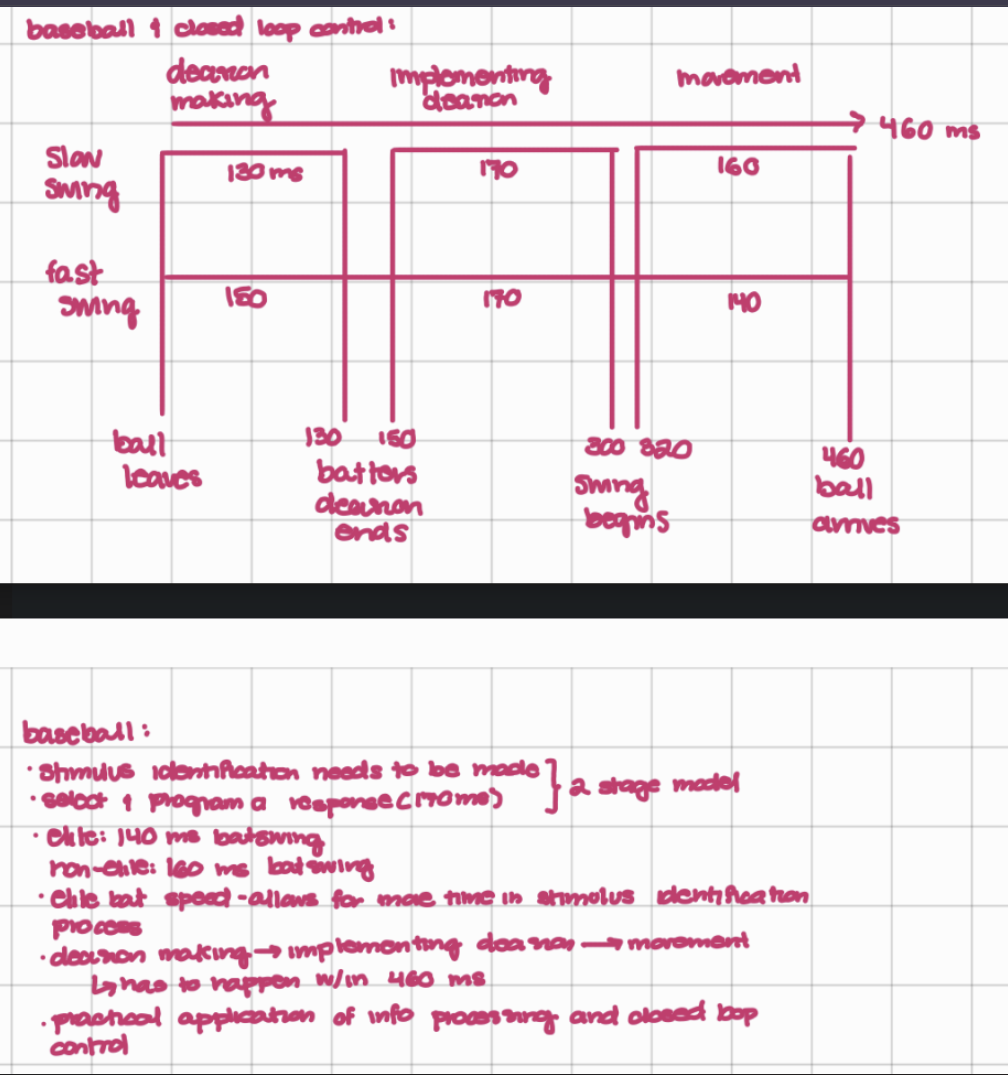 baseball & closed loop control:
decision implementing movement
making decision
460 ms
slow 130 ms 170 160
swing
fast
swing 150 170 140
ball 130 150 300 320 460
leaves batters swing ball
decision begins arrives
ends
baseball:
· stimulus identification needs to be made
· select & program a response (170 ms) 2 stage model
· elite: 140 ms batswing
non-elite: 160 ms batswing
· elite bat speed - allows for more time in stimulus identification
process
· decision making → implementing decision → movement
↳ has to happen w/in 460 ms
· practical application of info processing and closed loop
control